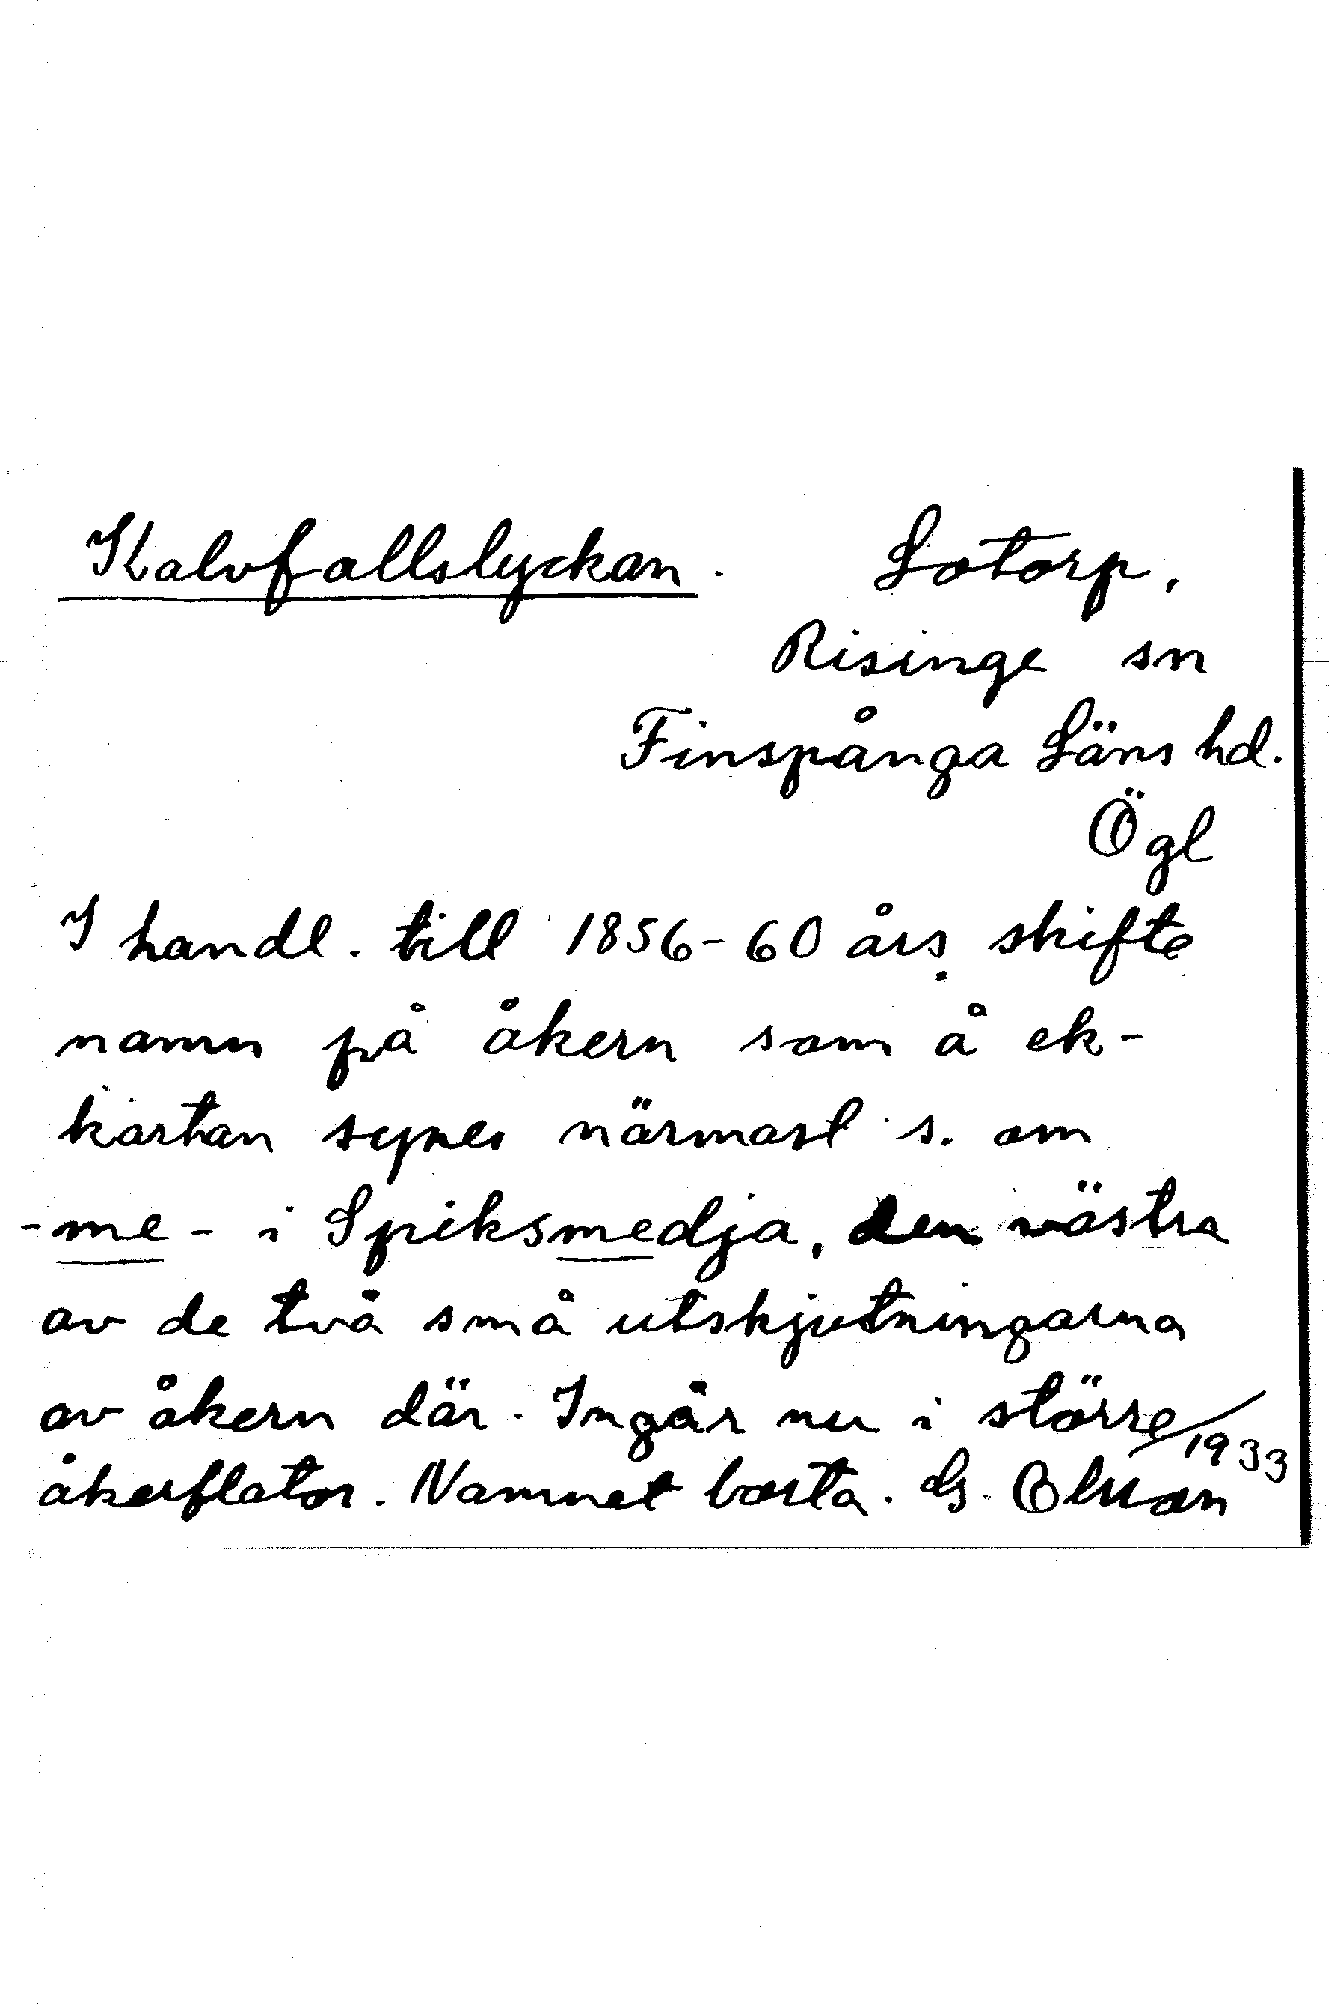 Kalvfallslyckan. Lotorp,
Risinge sn
Finspånga Läns hd.
Ögl
I handl. till 1856-60 års skifte
namn på åkern som å ek-
kartan synes närmast s. om
-me- i Spiksmedja, den västra
av de två små utskjutningarna
av åkern där. Ingår nu i större
åkerflator. Namnet borta. G. Olsson 1933